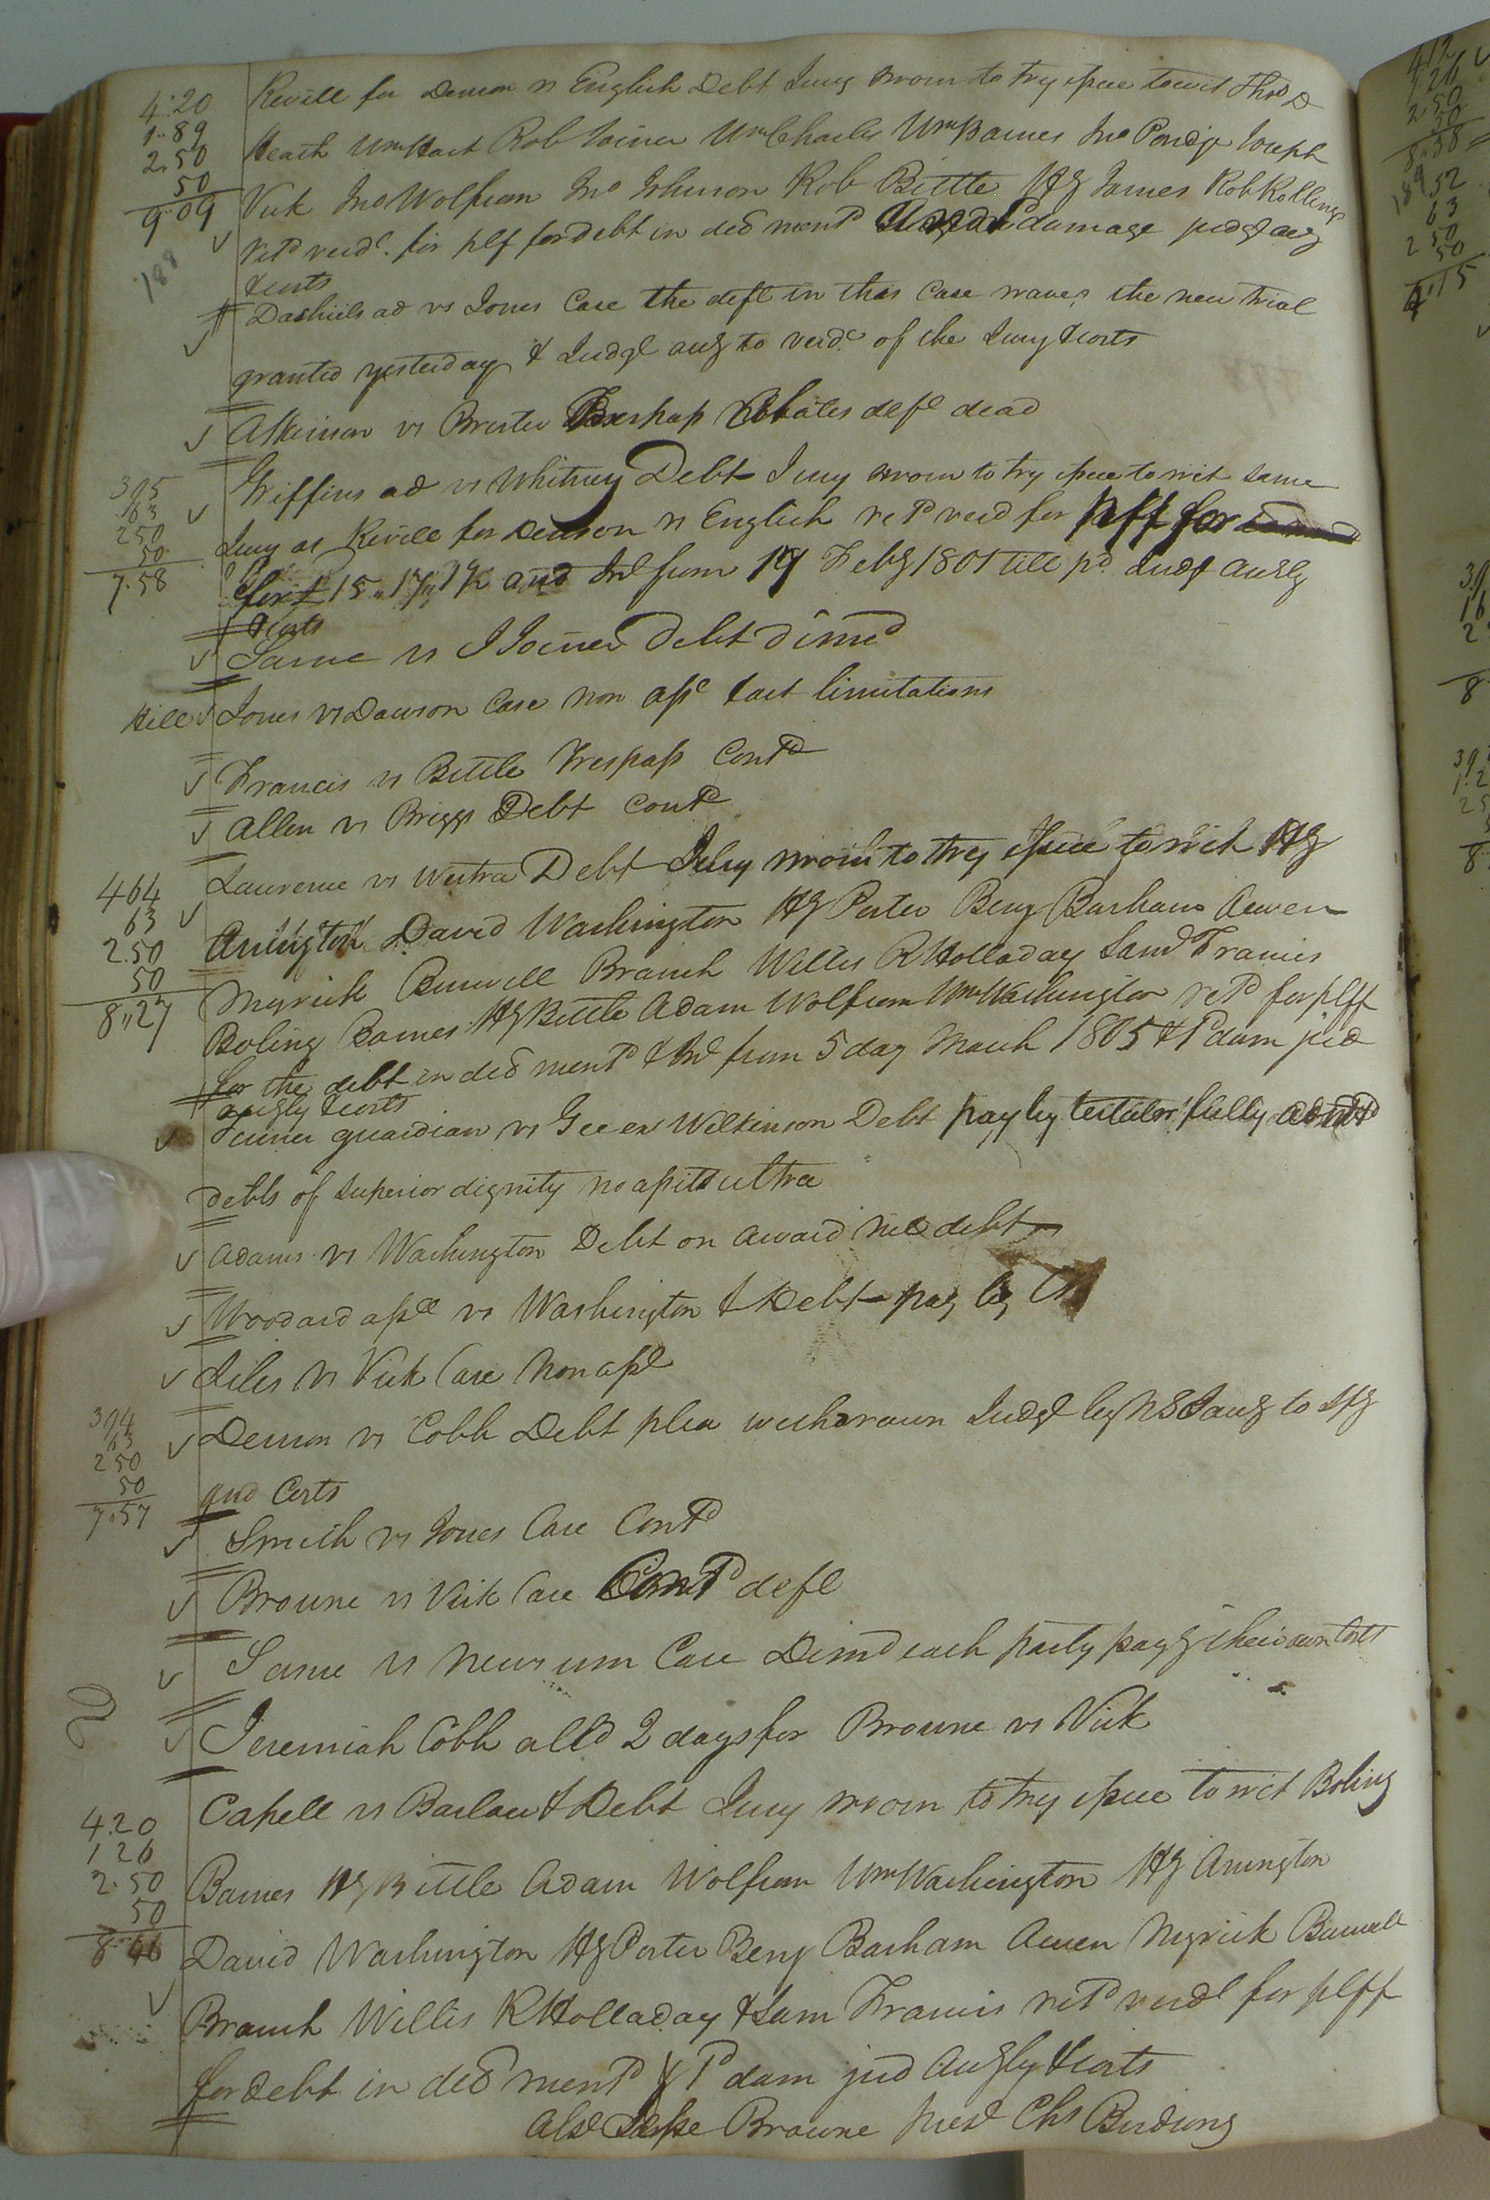 4.20
1.89
2.50
50
9.09
188
Revill for Denson vs English Debt Jury sworn to try issue towit Thos D
Heath Wm Hart Rob Joiner Wm Charles Wm Barnes Jno Joseph
Vick Jno Wolfrum Jno Johnson Rob Bittle Hy James Rob Rollings
retd verdt. for plf for debt in decd mentd damage judgt accg
& costs
Dashiels ad vs Jones Case the deft in this Case waves the new trial
granted yesterday & Judgt accg to verdt of the Jury & costs
Atkinson vs Trespass Abates deft dead
395
63
250
50
7.58
Griffins ad vs Whitney Debt Jury sworn to try issue to wit same
Jury as Revill for Denson vs English retd verd for plff for
for £ 15..17..1½ and Int from 19 Feby 1801 till pd Judgt accgly
& costs
Same vs J Joiner Debt dismd
Hill Jones vs Dawson Case non asst & act limitations
Francis vs Bittle Trespass Contd
Allen vs Briggs Debt Contd
464
63
2.50
50
8,,27
Laurence vs Westra Debt Jury sworn to try issue to wit Hy
Arrington David Washington Hy Porter Benj Barham Owen
Myrick Burwell Branch Willis R Holladay Saml Francis
Boling Barnes Hy Bittle Adam Wolfrum Wm Washington retd for plff
for the debt in decd mentd & Int from 5 day March 1805 & 1d dam jud
accgly & costs
guardian vs Ex Wilkinson Debt pay by testator fully admd
debts of superior dignity no assets ultra
Adams vs Washington Debt on award nil debt
Woodard assee vs Washington & Debt pay by
Liles vs Vick Case Non asst
394
63
250
50
7.57
Denson vs Cobb Debt plea withdrawn Judgt by NSJ accg to spy
and Costs
Smith vs Jones Case Contd
Browne vs Vick Case Contd deft
Same vs Newsum Case Dismd each party payg their own Costs
Jeremiah Cobb alld 2 days for Browne vs Vick
4.20
1 26
2.50
50
8.46
Capell vs Barlow & Debt Jury sworn to try issue to wit Boling
Barnes Hy Bittle Adam Wolfrum Wm Washington Hy Arrington
David Washington Hy Porter Benj Barham Owen Myrick Burwell
Branch Willis R Holladay & Sam Francis retd verdt for plff
for debt in decd mentd & 1d dam jud accgly & costs
Abst Jesse Browne prest Chs Birdsong